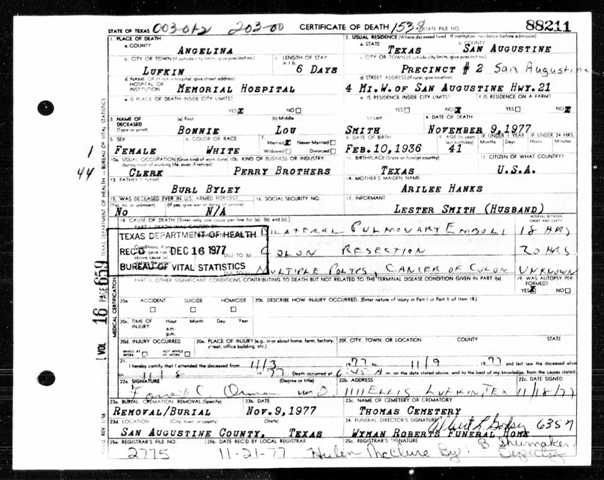 STATE OF TEXAS 003-012 203-00 CERTIFICATE OF DEATH 1538 STATE FILE NO. 88211
1. PLACE OF DEATH 2. USUAL RESIDENCE
a. COUNTY ANGELINA a. STATE TEXAS b. COUNTY SAN AUGUSTINE
LUFKIN 6 DAYS PRECINCT # 2 San Augustine
MEMORIAL HOSPITAL 4 MI.W. OF SAN AUGUSTINE HWY.21
e. IS PLACE OF DEATH INSIDE CITY LIMITS? e. IS RESIDENCE INSIDE CITY LIMITS? f. IS RESIDENCE ON A FARM?
YES NO YES NO YES NO
3. NAME OF DECEASED (a) First (b) Middle (c) Last 4. DATE OF DEATH
(Type or print) BONNIE LOU SMITH NOVEMBER 9, 1977
5. SEX 6. COLOR OR RACE 7. Married Never Married
FEMALE WHITE Widowed Divorced FEB.10,1936 41
CLERK PERRY BROTHERS TEXAS U.S.A.
13. FATHER'S NAME 14. MOTHER'S MAIDEN NAME
BURL BYLEY ARILEE HANKS
16. SOCIAL SECURITY NO. 17. INFORMANT
No N/A LESTER SMITH (HUSBAND)
18. CAUSE OF DEATH
BILATERAL PULMONARY EMBOLI 18 HRS
TEXAS DEPARTMENT OF HEALTH
REC'D DEC 16 1977 COLON RESECTION 20 HRS
BUREAU OF VITAL STATISTICS MULTIPLE POLYPS, CANCER OF COLON UNKNOWN
PART II OTHER SIGNIFICANT CONDITIONS CONTRIBUTING TO DEATH BUT NOT RELATED TO THE TERMINAL DISEASE CONDITION GIVEN IN PART I(a) 19. WAS AUTOPSY PERFORMED?
YES NO
20a. ACCIDENT SUICIDE HOMICIDE 20b. DESCRIBE HOW INJURY OCCURRED. (Enter nature of injury in Part I or Part II of item 18)
20c. TIME OF INJURY Hour Month Day Year
a.m.
p.m.
20d. INJURY OCCURRED 20e. PLACE OF INJURY (e.g., in or about home, farm, factory, street, office building, etc.) 20f. CITY, TOWN, OR LOCATION COUNTY STATE
21. I hereby certify that I attended the deceased from 11/3 1977 to 11/9 1977 and last saw the deceased alive
on 11/8 1977 Death occurred at on the date stated above, and to the best of my knowledge, from the causes stated
22a. SIGNATURE (Degree or title) 22b. ADDRESS 22c. DATE SIGNED
M.D. 1111 ELLIS LUFKIN, TEX 11/18/77
23a. BURIAL, CREMATION, REMOVAL (Specify) 23b. DATE 23c. NAME OF CEMETERY OR CREMATORY
REMOVAL/BURIAL NOV.9,1977 THOMAS CEMETERY
23d. LOCATION (City, town, or county) (State) 24. FUNERAL DIRECTOR'S SIGNATURE 6357
SAN AUGUSTINE COUNTY, TEXAS WYMAN ROBERTS FUNERAL HOME
25a. REGISTRAR'S FILE NO. 25b. DATE REC'D BY LOCAL REGISTRAR 25c. REGISTRAR'S SIGNATURE
2775 11-21-77 Helen McClure By: B. Shumaker, Deputy
TEXAS DEPARTMENT OF HEALTH - BUREAU OF VITAL STATISTICS
1
44
VOL 16 PAGE 659
MEDICAL CERTIFICATION